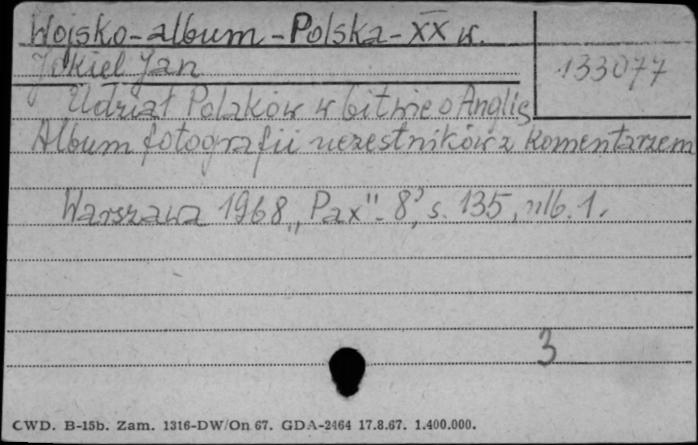 Wojsko-album-Polska-XX w.
Jokiel Jan
133077
Udział Polaków w bitwie o Anglię
Album fotografii uczestników z komentarzem
Warszawa 1968 „Pax". 8°, s. 135, nlb. 1.
3
CWD. B-15b. Zam. 1316-DW/On 67. GDA-2464 17.8.67. 1.400.000.